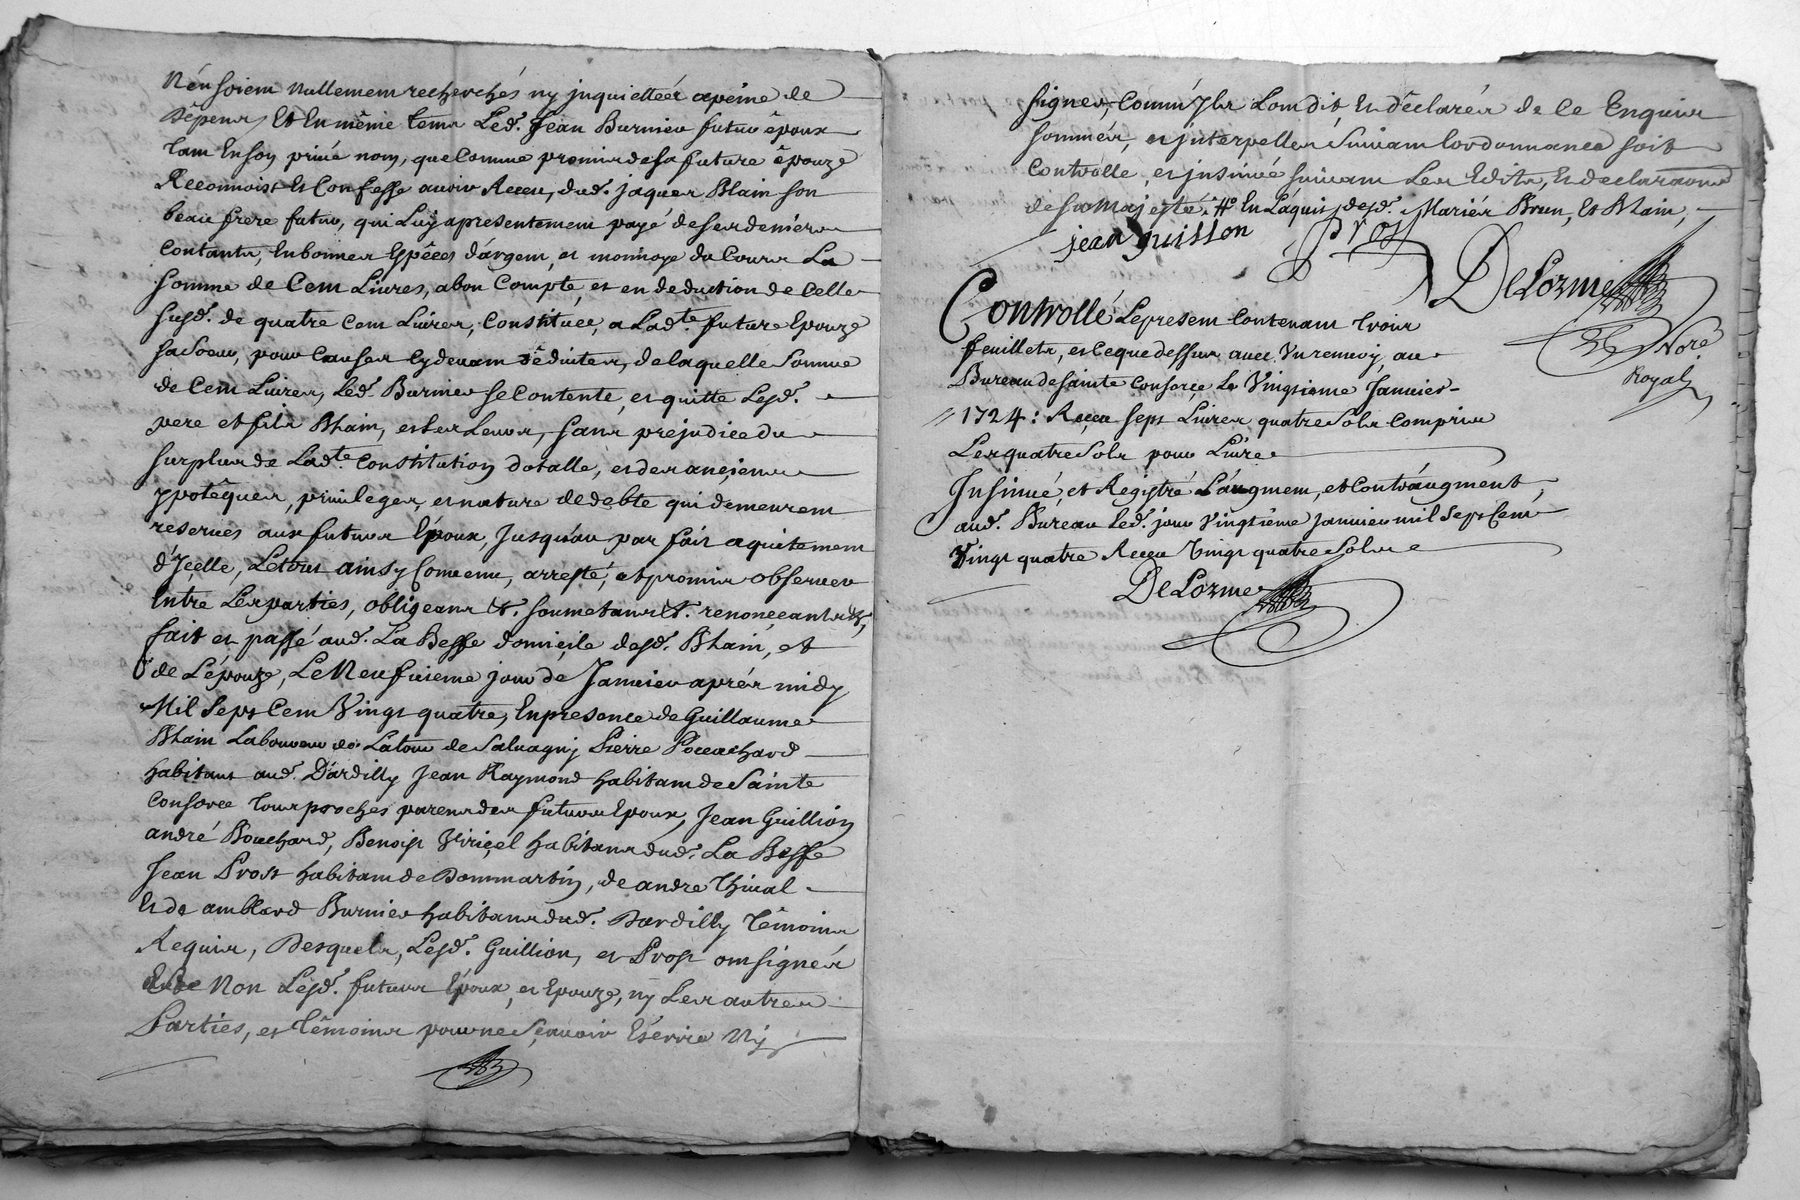 n'en soient nullement recherchés ny jnquiettéz apéine de
dépens, Et en même tems Led. Jean Burnier futur époux
tant en son privé nom, que comme promis de sa future épouze
Reconnoist et Confesse avoir Receu, dud. jaques Blain son
beau frere futur, qui Luy a presentement payé de ses deniers
Contants, en bonnes Espéces d'argent, et monnoye du Cours La
somme de Cent Livres, a bon Compte, et en deduction de Celle
susd. de quatre Cent Livres, Constituée, a Lad.te future Epouze
sa Soeur, pour Causes Cy devant déduites, de laquelle Somme
de Cent Livres, Led. Burnier se Contente, et quitte Lesd.
pere et fils Blain, et Les Leurs, sans prejudice du
surplus de Lad.te Constitution dotalle, et des anciennes
ypotêques, privileges, et nature de debte qui demeurent
reservés aux futurs Epoux, Jusqu'au parfait aquitement
d'Jcelle, Le tout ainsy Convenu, arresté, et promis observer
Entre Les parties, obligeans &. soumetans &. renonçeants &.
fait et passé aud. La Besse domicile desd. Blain, et
de L'épouze, Le Neufvieme jour de Janvier aprés midy
Mil Sept Cent Vingt quatre, En presence de Guillaume
Blain Laboureur de Latour de Salvagny Pierre Bouchard
habitant aud. Dardilly Jean Raymond habitant de Sainte
Consorce tous proches parens des futurs Epoux, Jean Guillion
andré Bouchard, Benoist Viriçel habitans dud. La Besse
Jean Prost habitant de Dommartin, de andre Thival
Et de amblard Burnier habitans dud. Dardilly Témoins
Requis, Desquels, Lesd. Guillion, et Prost ont signéz
Non Lesd. futurs Epoux, et Epouze, ny Les autres
Parties, et témoins pour ne Sçavoir Escrire Ny
signer, Comm' Jls L'ont dit, Et déclaréz de ce Enquis
sommés, et jnterpellés Suivant l'ordonnance soit
Controlle, et jnsinué suivant Les Edits, Et declarations
de sa Majesté. En L'aquit, desd. Mariéz Brun, Et Blain,
jean guillon Prost
Delorme
Nore
Royal
Controllé Le present Contenant trois
feuillets, et ce que dessus avec Un renvoy, au
Bureau de Sainte Consorce Le Vingtieme Janvier
1724: Receu sept Livres quatre Sols Compris
Les quatre Sols pour Livre
Jnsinué, et Registré L'augment, et Contr'augment,
aud. Bureau Led. jour Vingtiéme janvier mil Sept Cent
Vingt quatre Receu Vingt quatre Sols
Delorme